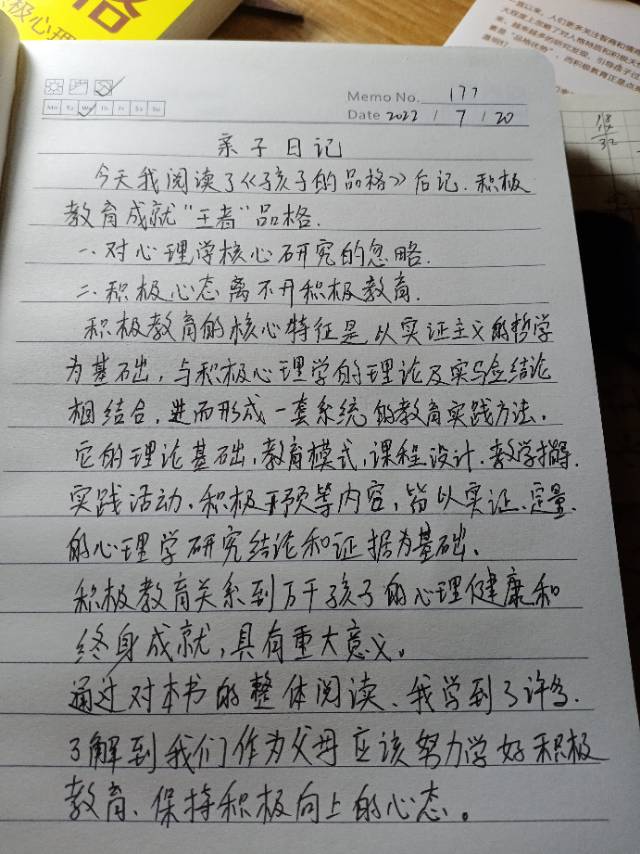 格
极心理
Memo No. 177
Mo Tu We Th Fr Sa Su
Date 2022 / 7 / 20
亲子日记
今天我阅读了《孩子的品格》后记.积极
教育成就"王者"品格.
一.对心理学核心研究的忽略.
二.积极心态离不开积极教育.
积极教育的核心特征是,以实证主义的哲学
为基础,与积极心理学的理论及实验结论
相结合,进而形成一套系统的教育实践方法.
它的理论基础,教育模式,课程设计.教学指导.
实践活动.积极干预等内容,皆以实证、定量.
的心理学研究结论和证据为基础、
积极教育关系到万千孩子的心理健康和
终身成就,具有重大意义。
通过对本书的整体阅读、我学到了许多.
了解到我们作为父母应该努力学好积极
教育、保持积极向上的心态。